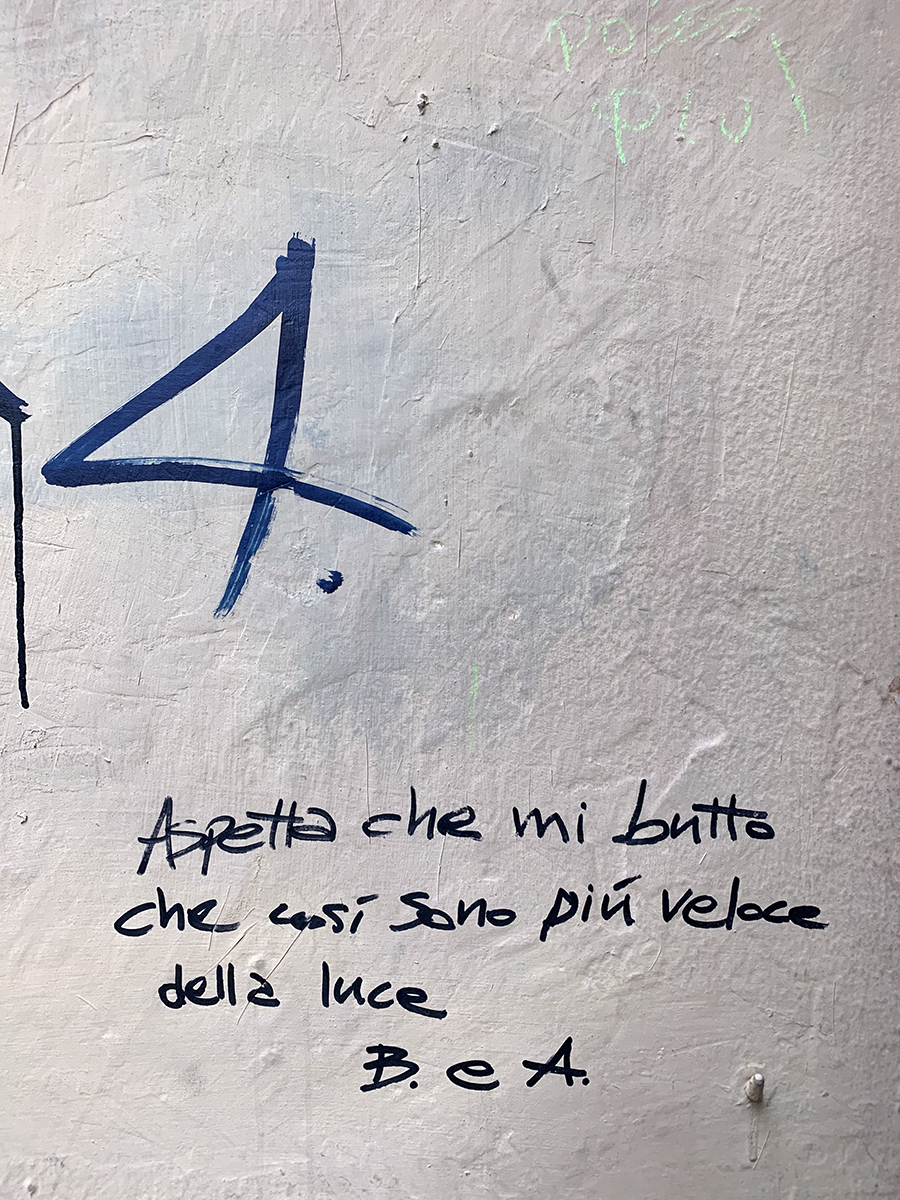 più!
4.
Aspetta che mi butto
che così sono più veloce
della luce
B. e A.